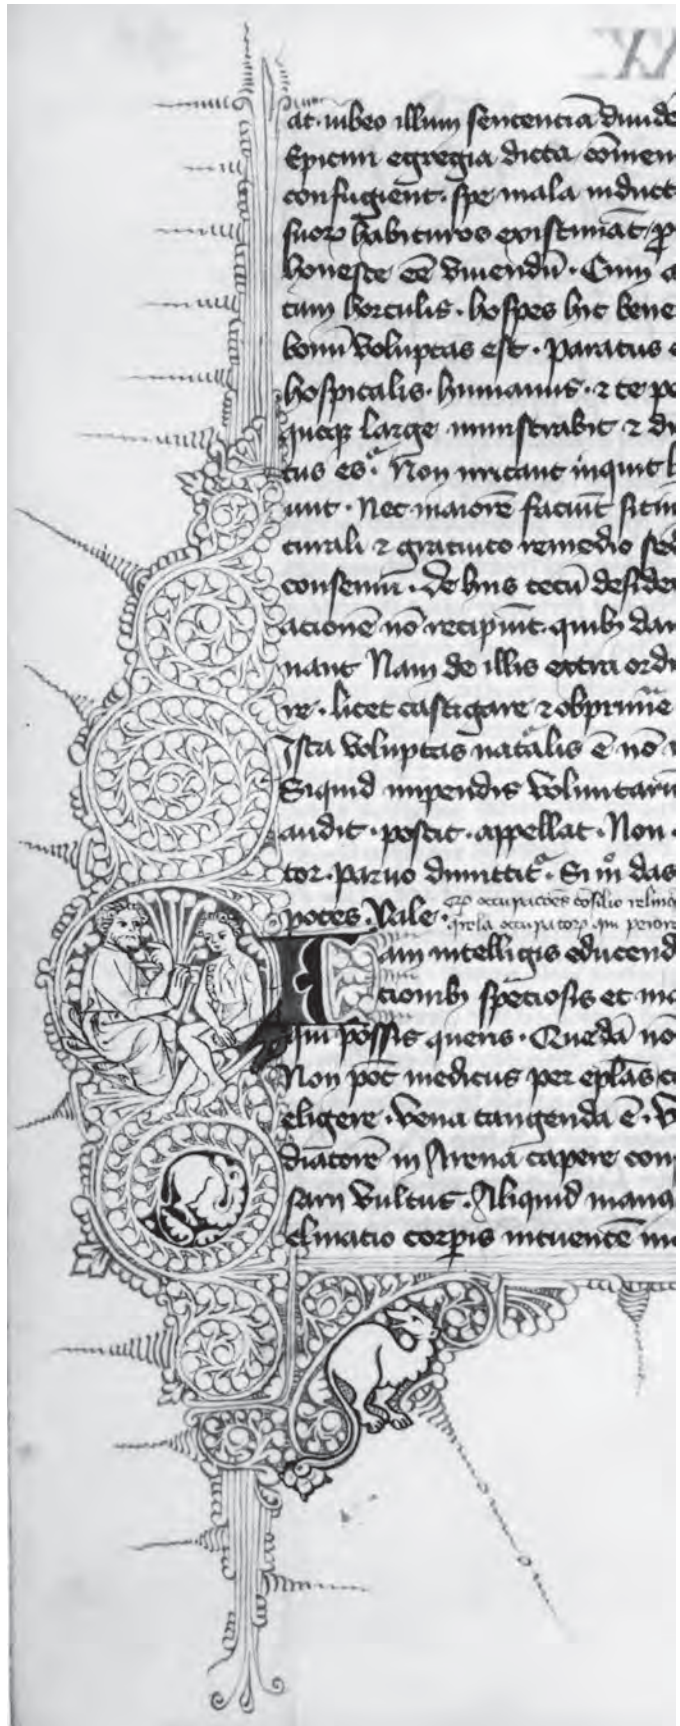 at·iubeo illum sentenciā diuide
Epicuri egregia dicta cōmem
confugient·spe mala induct
suoꝝ habituros existimāt
honeste eē viuendū·Cum a
tum hortulis·hospes hic bene
bonū voluptas est·paratus e
hospitalis·humanus·⁊ te po
quoqꝫ large ministrabit ⁊ di
tus es·Non irritant inquit h
iunt·Nec maiorē faciūt sitim
turali ⁊ gratuito remedio sed
consenui·De hiis tecū desider
acionē nō recipiūt·quibꝫ dar
nant Nam de illis extra ordi
re·licet castigare ⁊ obprimē
Ista voluptas natalis ē nō n
Siquid impendis voluntariū
audit·poscit·appellat·Non
tor·paruo dimittit᷑·Si mō das
potes·Vale·
occupacōes cōsilio relinq
q̄rela occupatoꝝ qui peiore
Iam intelligis educend
cionibꝫ speciosis et ma
qui possis queris·Quedā nō
Non pōt medicus per epl̄as c
eligere·vena tangenda ē·V
diatorē in Arena capere con
sarii vultus·Aliquid mana
clinatio corꝑis intuentē m